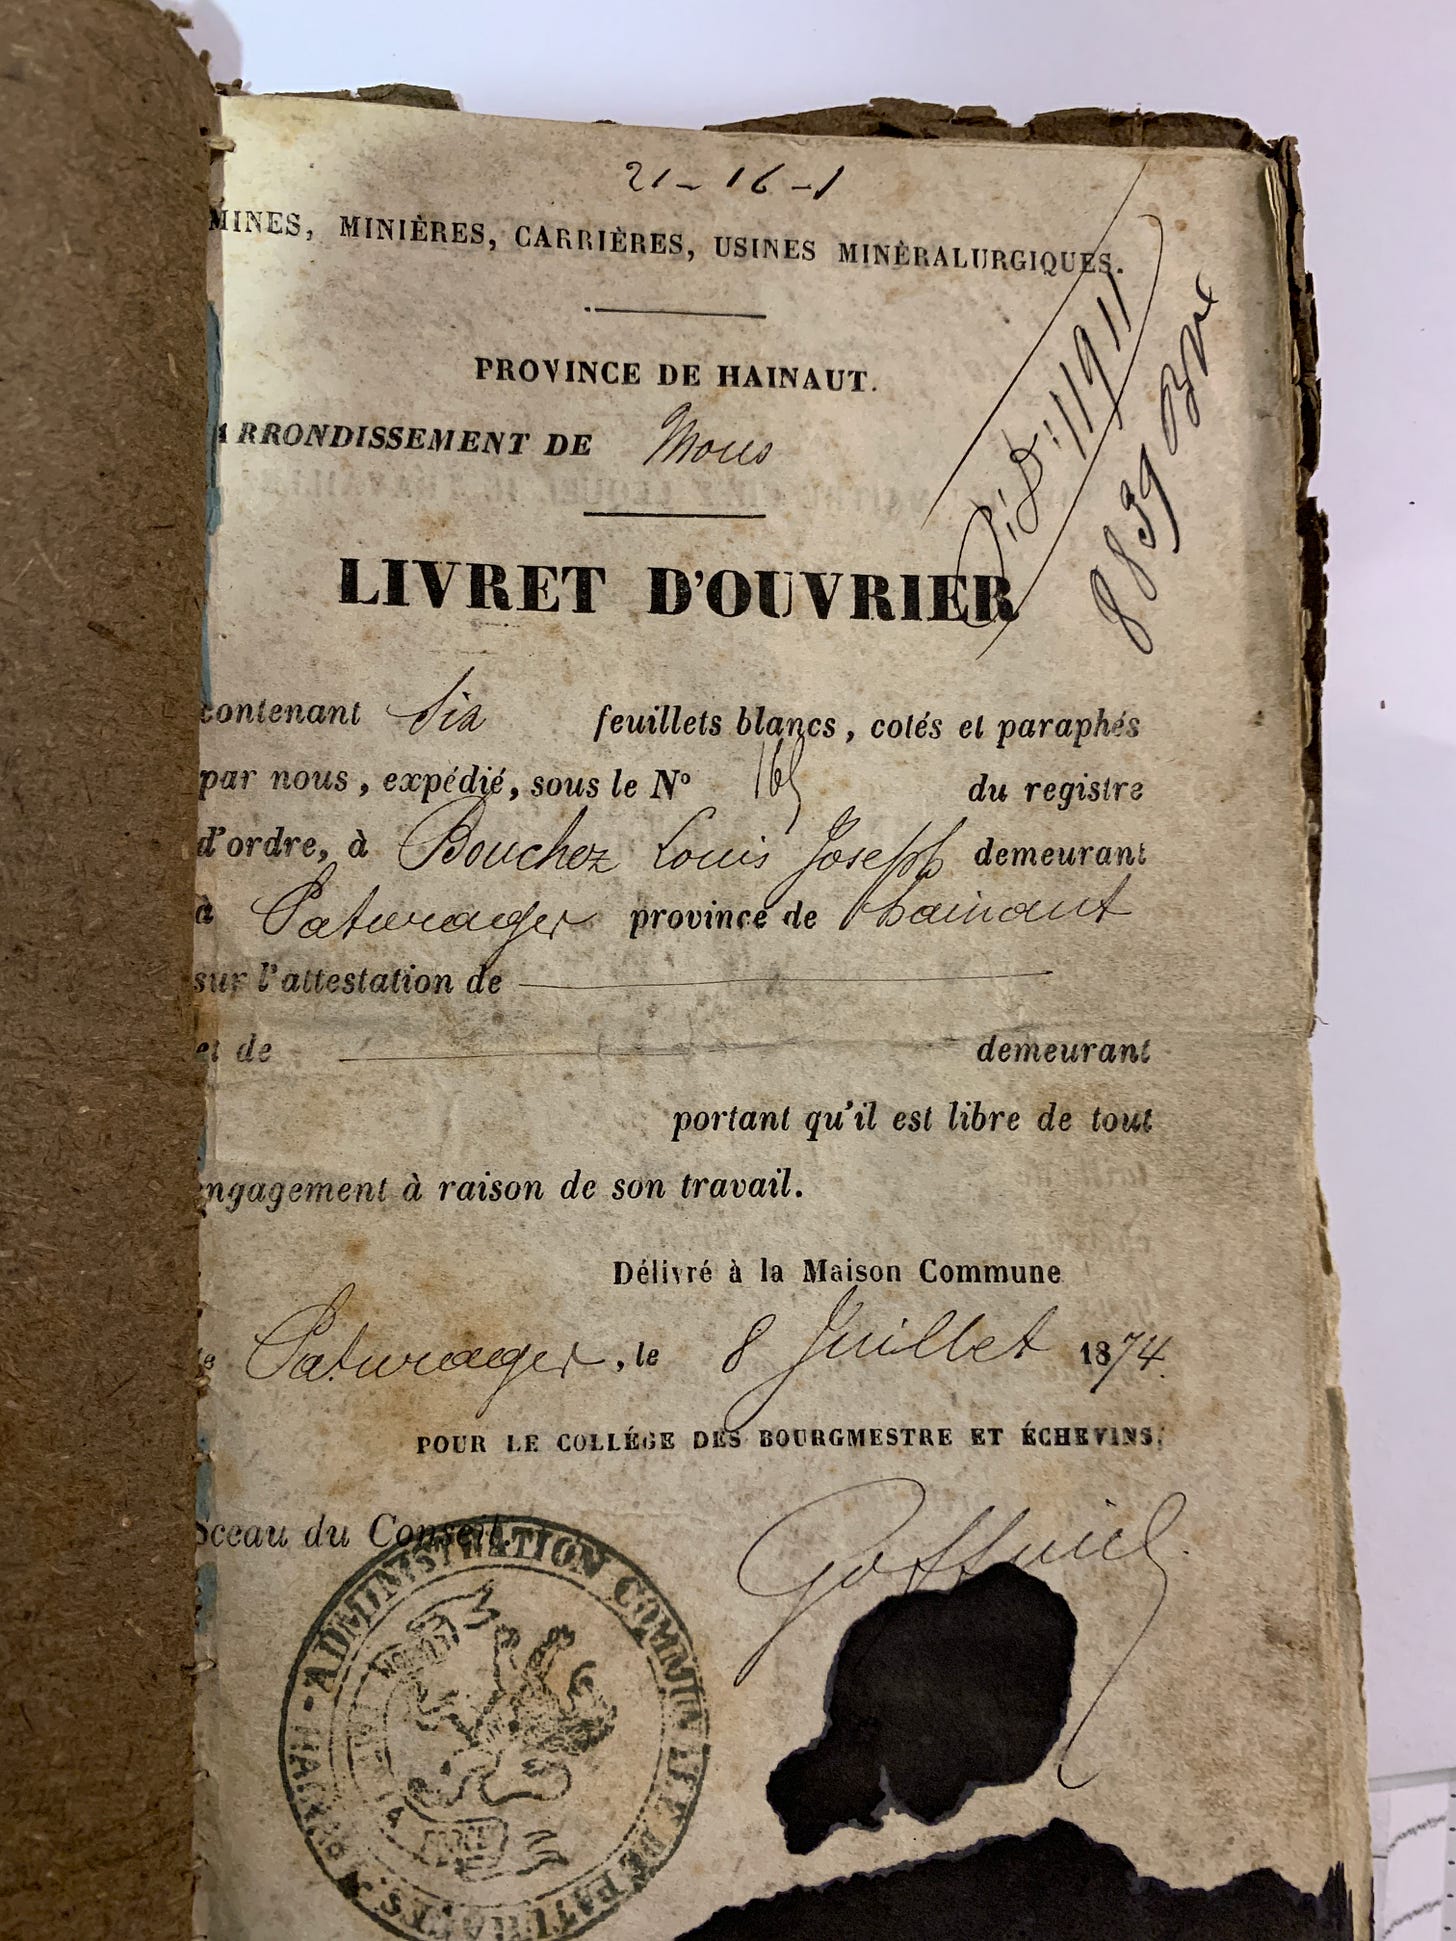 21-16-1
MINES, MINIÈRES, CARRIÈRES, USINES MINÉRALURGIQUES.
PROVINCE DE HAINAUT.
ARRONDISSEMENT DE Mons
LIVRET D'OUVRIER
8839
contenant Six feuillets blancs, cotés et paraphés
par nous, expédié, sous le No 165 du registre
d'ordre, à Bouchez Louis Joseph demeurant
à Paturages province de hainaut
sur l'attestation de
et de demeurant
portant qu'il est libre de tout
engagement à raison de son travail.
Délivré à la Maison Commune
Paturages, le 8 Juillet 1874.
POUR LE COLLÉGE DES BOURGMESTRE ET ÉCHEVINS,
Sceau du Conseil.
ADMINISTRATION COMMUNALE DE PATURAGES
HAINAUT